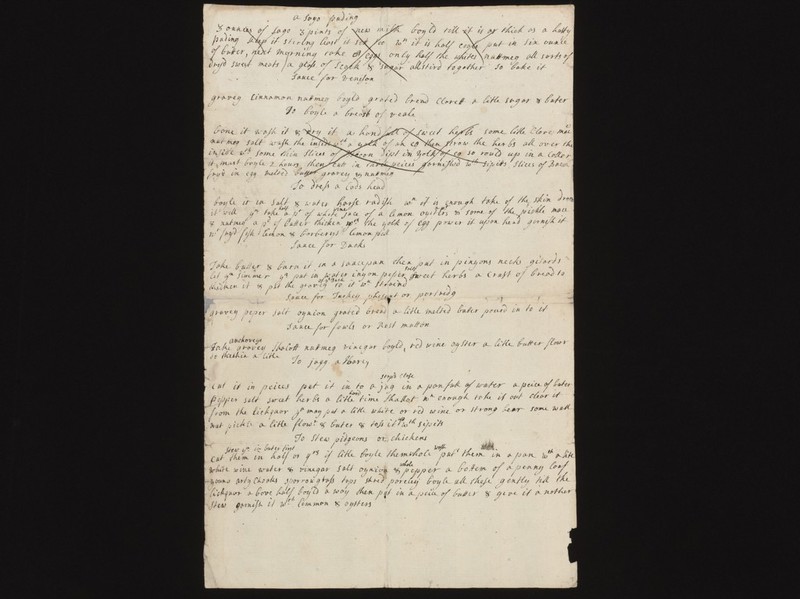 a Sago puding
8 ounces of sago 4 pints of new milk boyld till it is as thick as a hasty
puding keep it stiring least it set too wn it is half could put in six ounce
of buter, next morning take 8 eggs only half the whites nutmeg all sorts of
dryd sweet meats a glass of sack & sugar all stird together so bake it
Sauce for venison
gravey Cinnamon nutmeg boyld grated bread Clarett a litle sugar & buter
To boyle a breast of veale
bone it wash it & dry it a handfull of sweet herbs some litle Cloves mace
nutmeg salt wash the inside wth a yolk of an egg then strow the herbs all over the
inside wth some thin slices of bacon dipt in yolk of egg so roule up in a Coller
it must boyle 2 hours, then cut in peices garnished wth sipits, slices of
fryd in egg melted butter gravey & nutmeg
To dress a Cods head
boyle it in salt & water horse radish wn it is enough take of the skin
it will yn take of white wine juce of a lemon oysters & some of the pickle mace
& nutmeg a qr of butter thicken wth the yolk of egg power it upon head garnish it
wth fryd fish lemon & barberrys lemon pill
Sauce for Ducks
Take butter & burn it in a saucepan then put in pinyons necks gisards
let ym simmer yn put in water inyon peper sweet herbs a Crust of bread to
thicken it & put the gravey to it wn straind
Sauce for Turkey phesant or partredg
gravey peper salt oynion grated bread a litle melted buter poured in to it
Sauce for fowls or Rost mutton
anchoveys
Take gravey Shalott nutmeg vinegar boyld, red wine oyster a litle butter flour
to thickin a litle
To jugg a Harey
stopd close
Cut it in peices put it in to a jug in a pan full of water a peice of buter
pepper salt sweet herbs a litle time Shalot wn enough take it out clear it
from the lickquor yn may put a litle white or red wine or strong bear some wall
nut pickle a litle flowr & buter & toss it up wth sipits
To Stew pidgeons or chickens
stew ym in buter first
Cut them in half or qrs if litle boyle them whole put them in a pan wth a litle
white wine water & vinegar salt oynion & whole pepper a botem of a penny loaf
young harty Choaks sparrowgrass tops shred parsley boyle all these gently till the
lickquor above half boyld away then put in a peice of butter & give it a nother
stew garnish it wth lemmon & oysters